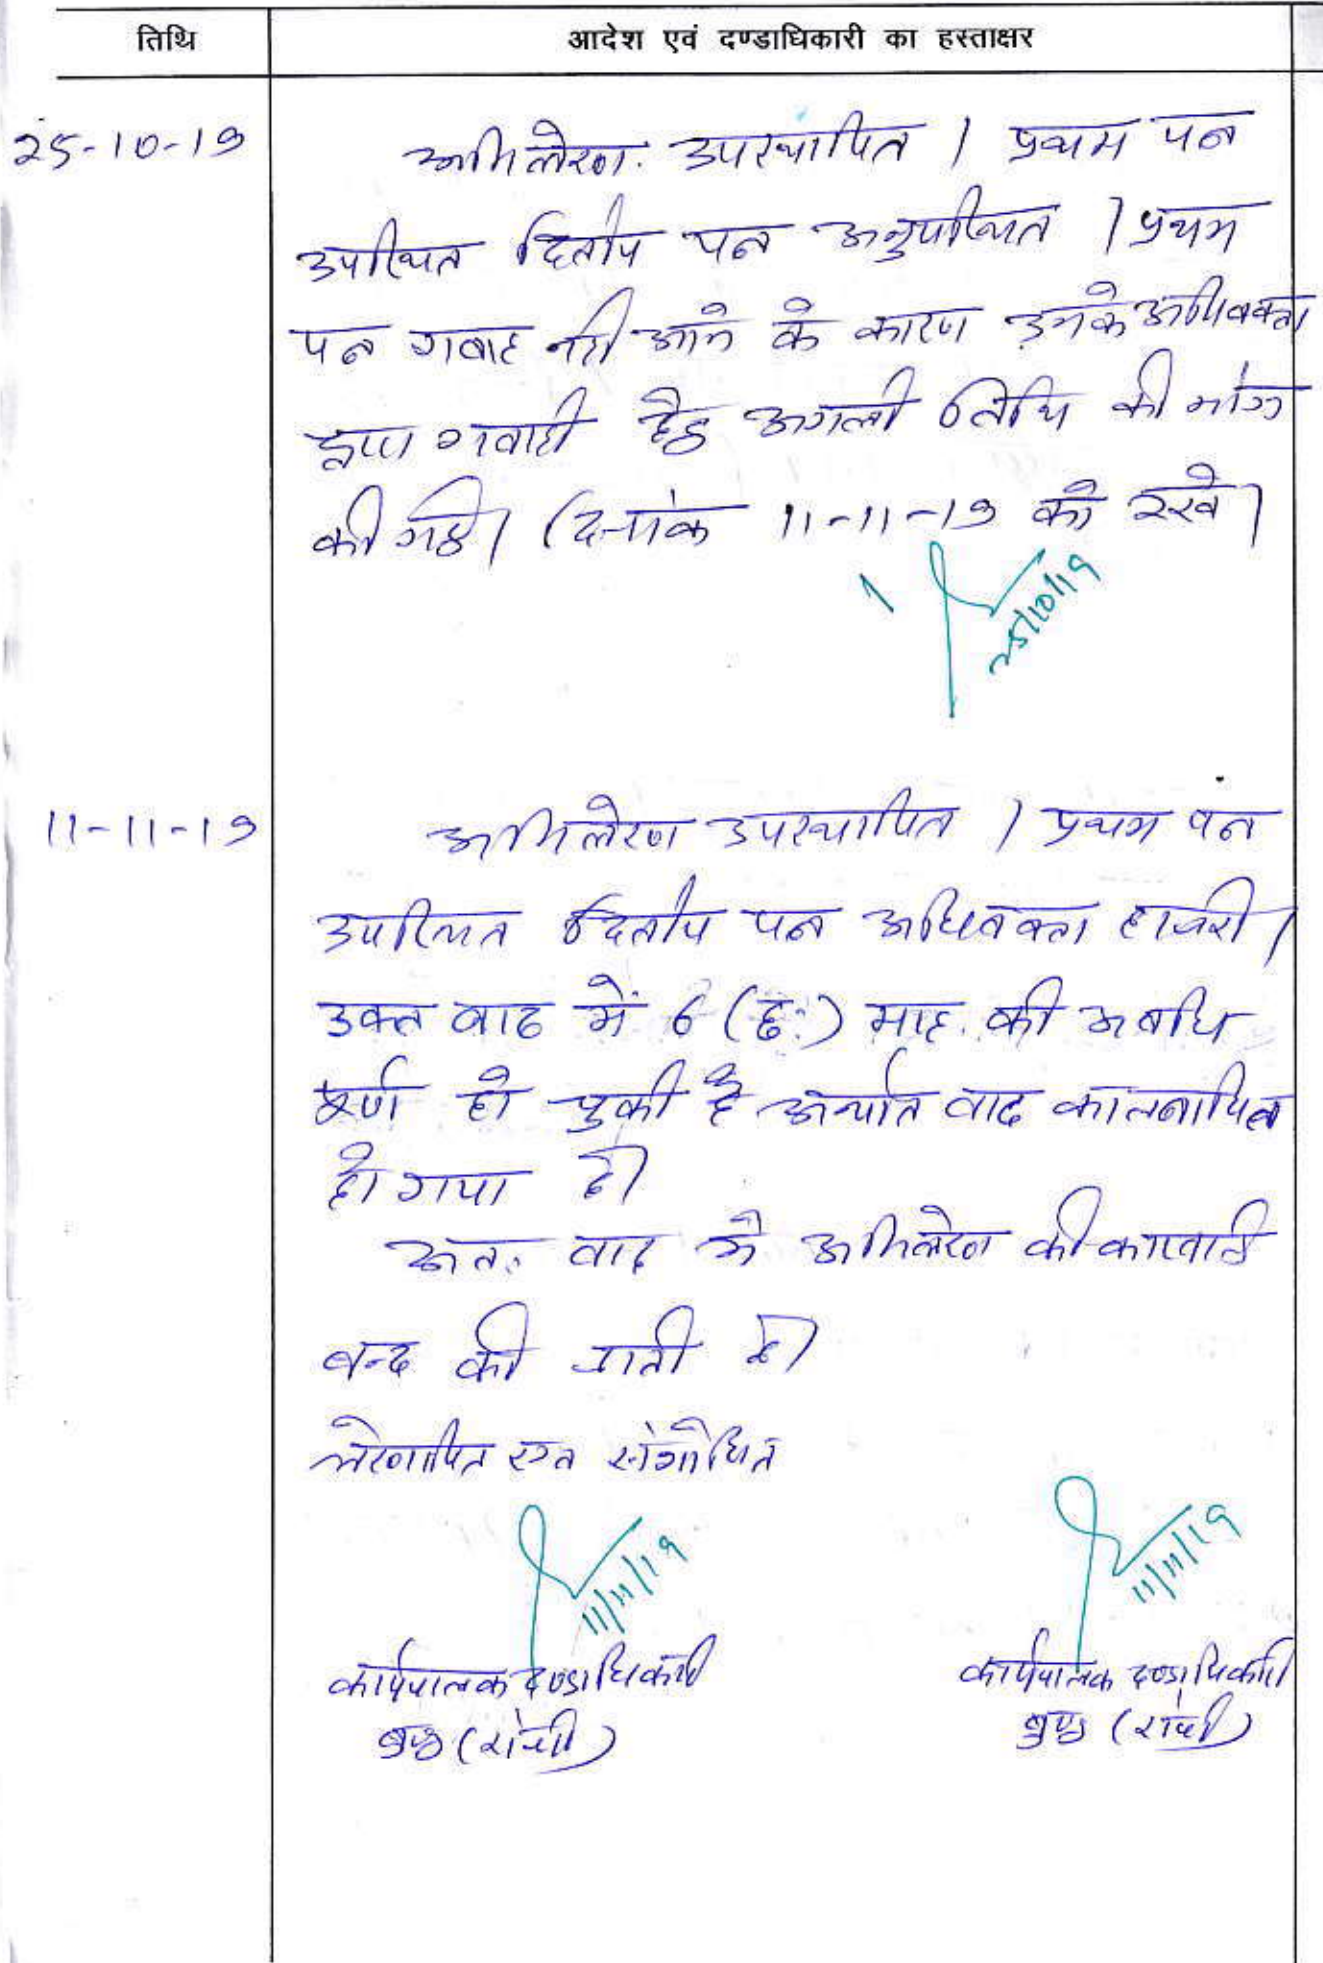 तिथि
आदेश एवं दण्डाधिकारी का हस्ताक्षर
25-10-19
अभिलेख उपस्थापित । प्रथम पक्ष
उपस्थित द्वितीय पक्ष अनुपस्थित । प्रथम
पक्ष गवाह नहीं आने के कारण उनके अधिवक्ता
द्वारा गवाही हेतु अगली तिथि की मांग
की गई। दिनांक 11-11-19 को रखें।
25/10/19
11-11-19
अभिलेख उपस्थापित । प्रथम पक्ष
उपस्थित द्वितीय पक्ष अधिवक्ता हाजरी।
उक्त वाद में 6 (छ:) माह की अवधि
पूर्ण हो चुकी है अर्थात वाद कालबाधित
हो गया है।
अत: वाद के अभिलेख की कारवाई
बन्द की जाती है।
लेखापित एवं संशोधित
11/11/19
11/11/19
कार्यपालक दण्डाधिकारी
कार्यपालक दण्डाधिकारी
बुण्डू (राँची)
बुण्डू (राँची)